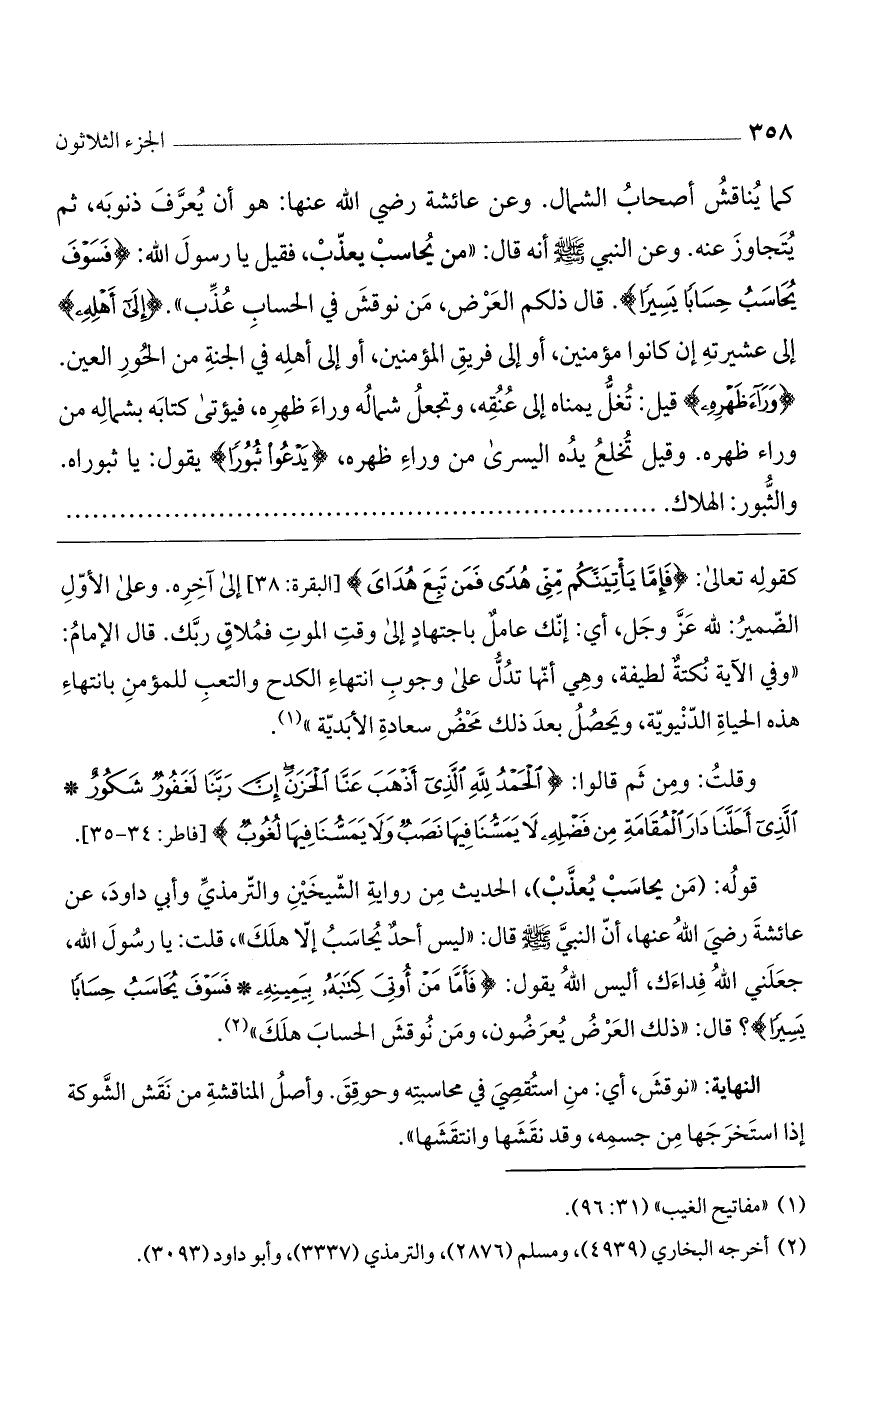 ٣٥٨ ــــــــــــــــــــــــــــــــ الجزء الثلاثون
كما يُناقشُ أصحابُ الشمال. وعن عائشة رضي الله عنها: هو أن يُعرَّفَ ذنوبَه، ثم
يُتَجاوزَ عنه. وعن النبي ﷺ أنه قال: «من يُحاسبْ يعذّبْ، فقيل يا رسولَ الله: ﴿فَسَوْفَ
يُحَاسَبُ حِسَابًا يَسِيرًا﴾. قال ذلكم العَرْض، مَن نوقشَ في الحسابِ عُذِّب». ﴿إِلَىٰٓ أَهْلِهِۦ﴾
إلى عشيرتهِ إن كانوا مؤمنين، أو إلى فريقِ المؤمنين، أو إلى أهلِه في الجنةِ من الحُورِ العين.
﴿وَرَآءَ ظَهْرِهِۦ﴾ قيل: تُغلُّ يمناه إلى عُنُقِه، وتجعلُ شمالُه وراءَ ظهرِه، فيؤتىٰ كتابَه بشمالِه من
وراء ظهره. وقيل تُخلعُ يدُه اليسرىٰ من وراءِ ظهره، ﴿يَدْعُوا۟ ثُبُورًا﴾ يقول: يا ثبوراه.
والثُّبور: الهلاك. ....................................................................
كقولِه تعالىٰ: ﴿فَإِمَّا يَأْتِيَنَّكُم مِّنِّى هُدًى فَمَن تَبِعَ هُدَاىَ﴾ [البقرة: ٣٨] إلىٰ آخِرِه. وعلىٰ الأوّلِ
الضّميرُ: لله عَزَّ وجَل، أي: إنّك عاملٌ باجتهادٍ إلىٰ وقتِ الموتِ فمُلاقٍ ربَّك. قال الإمامُ:
«وفي الآية نُكتةٌ لطيفة، وهِي أنّها تدُلُّ علىٰ وجوبِ انتهاءِ الكدح والتعبِ للمؤمنِ بانتهاءِ
هذه الحياةِ الدّنْيويّة، ويَحصُلُ بعدَ ذلك مَحْضُ سعادةِ الأبَديّة»(١).
وقلتُ: ومِن ثَم قالوا: ﴿ٱلْحَمْدُ لِلَّهِ ٱلَّذِىٓ أَذْهَبَ عَنَّا ٱلْحَزَنَ ۖ إِنَّ رَبَّنَا لَغَفُورٌ شَكُورٌ *
ٱلَّذِىٓ أَحَلَّنَا دَارَ ٱلْمُقَامَةِ مِن فَضْلِهِۦ لَا يَمَسُّنَا فِيهَا نَصَبٌ وَلَا يَمَسُّنَا فِيهَا لُغُوبٌ﴾ [فاطر: ٣٤-٣٥].
قولُه: (مَن يحاسَبْ يُعذَّبْ)، الحديث مِن روايةِ الشّيخَيْنِ والتّرمذيِّ وأبي داودَ، عن
عائشةَ رضيَ اللهُ عنها، أنّ النبيَّ ﷺ قال: «ليس أحدٌ يُحاسَبُ إلّا هلَكَ»، قلت: يا رسُولَ الله،
جعلَني اللهُ فِداءَك، أليس اللهُ يقول: ﴿فَأَمَّا مَنْ أُوتِىَ كِتَٰبَهُۥ بِيَمِينِهِۦ * فَسَوْفَ يُحَاسَبُ حِسَابًا
يَسِيرًا﴾؟ قال: «ذلك العَرْضُ يُعرَضُون، ومَن نُوقشَ الحسابَ هلَكَ»(٢).
النهاية: «نوقشَ، أي: منِ استُقصِيَ في محاسبتِه وحوقِقَ. وأصلُ المناقشةِ من نَقَش الشَّوكة
إذا استَخرَجَها مِن جسمِه، وقد نقَشَها وانتقَشَها».
(١) «مفاتيح الغيب» (٣١: ٩٦).
(٢) أخرجه البخاري (٤٩٣٩)، ومسلم (٢٨٧٦)، والترمذي (٣٣٣٧)، وأبو داود (٣٠٩٣).